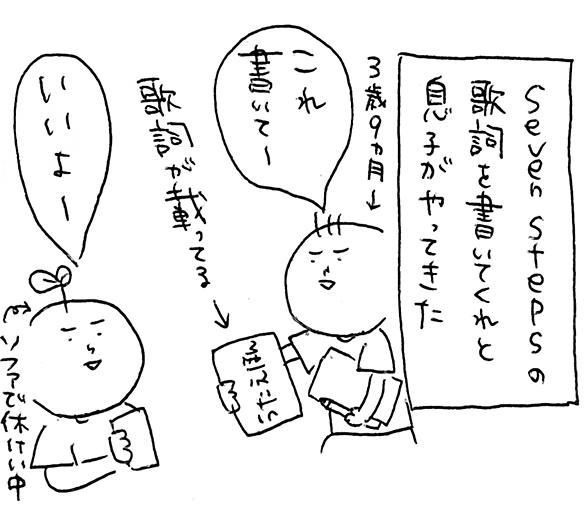 Seven Stepsの
歌詞を書いてくれと
息子がやってきた
3歳9ヵ月
これ
書いてー
歌詞が載ってる
うたえほん
いいよー
ソファで休けい中